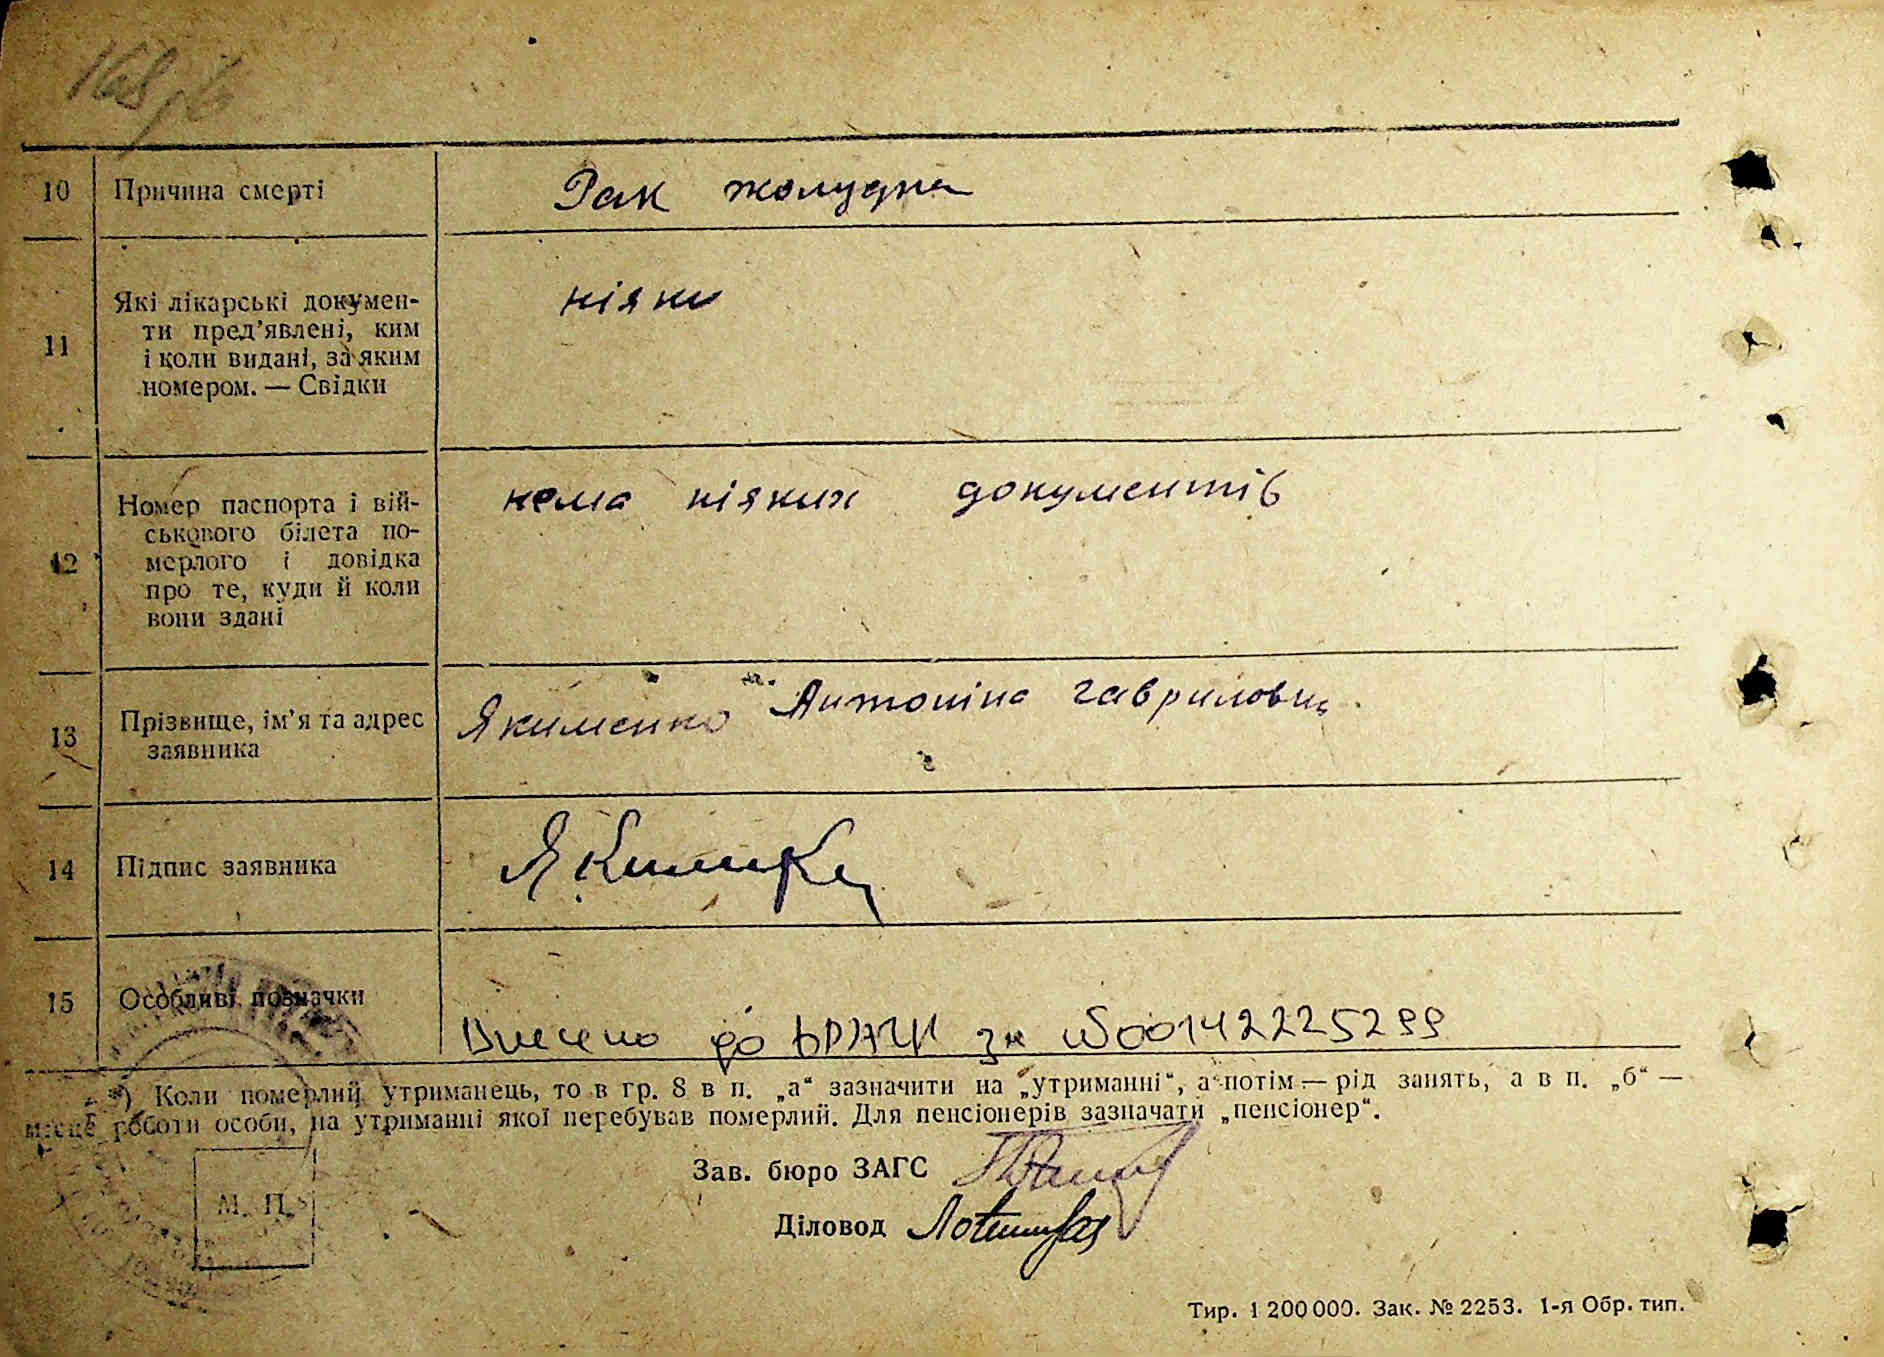 10 Причина смерті Рак жолудка
11 Які лікарські докумен-
ти пред’явлені, ким
і коли видані, за яким
номером. — Свідки
ніяки
12 Номер паспорта і вій-
ськового білета по-
мерлого і довідка
про те, куди й коли
вони здані
нема ніяких документів
13 Прізвище, ім’я та адрес
заявника
Якименко Антоніна Гавриловна
14 Підпис заявника
15 Особливі позначки
Внесено до ДРАЦС за №00142225299
*) Коли померлий утриманець, то в гр. 8 в п. „а“ зазначити на „утриманні“, а потім — рід занять, а в п. „б“ —
місце роботи особи, на утриманні якої перебував померлий. Для пенсіонерів зазначати „пенсіонер“.
Зав. бюро ЗАГС
М. П.
Діловод
Тир. 1 200 000. Зак. № 2253. 1-я Обр. тип.